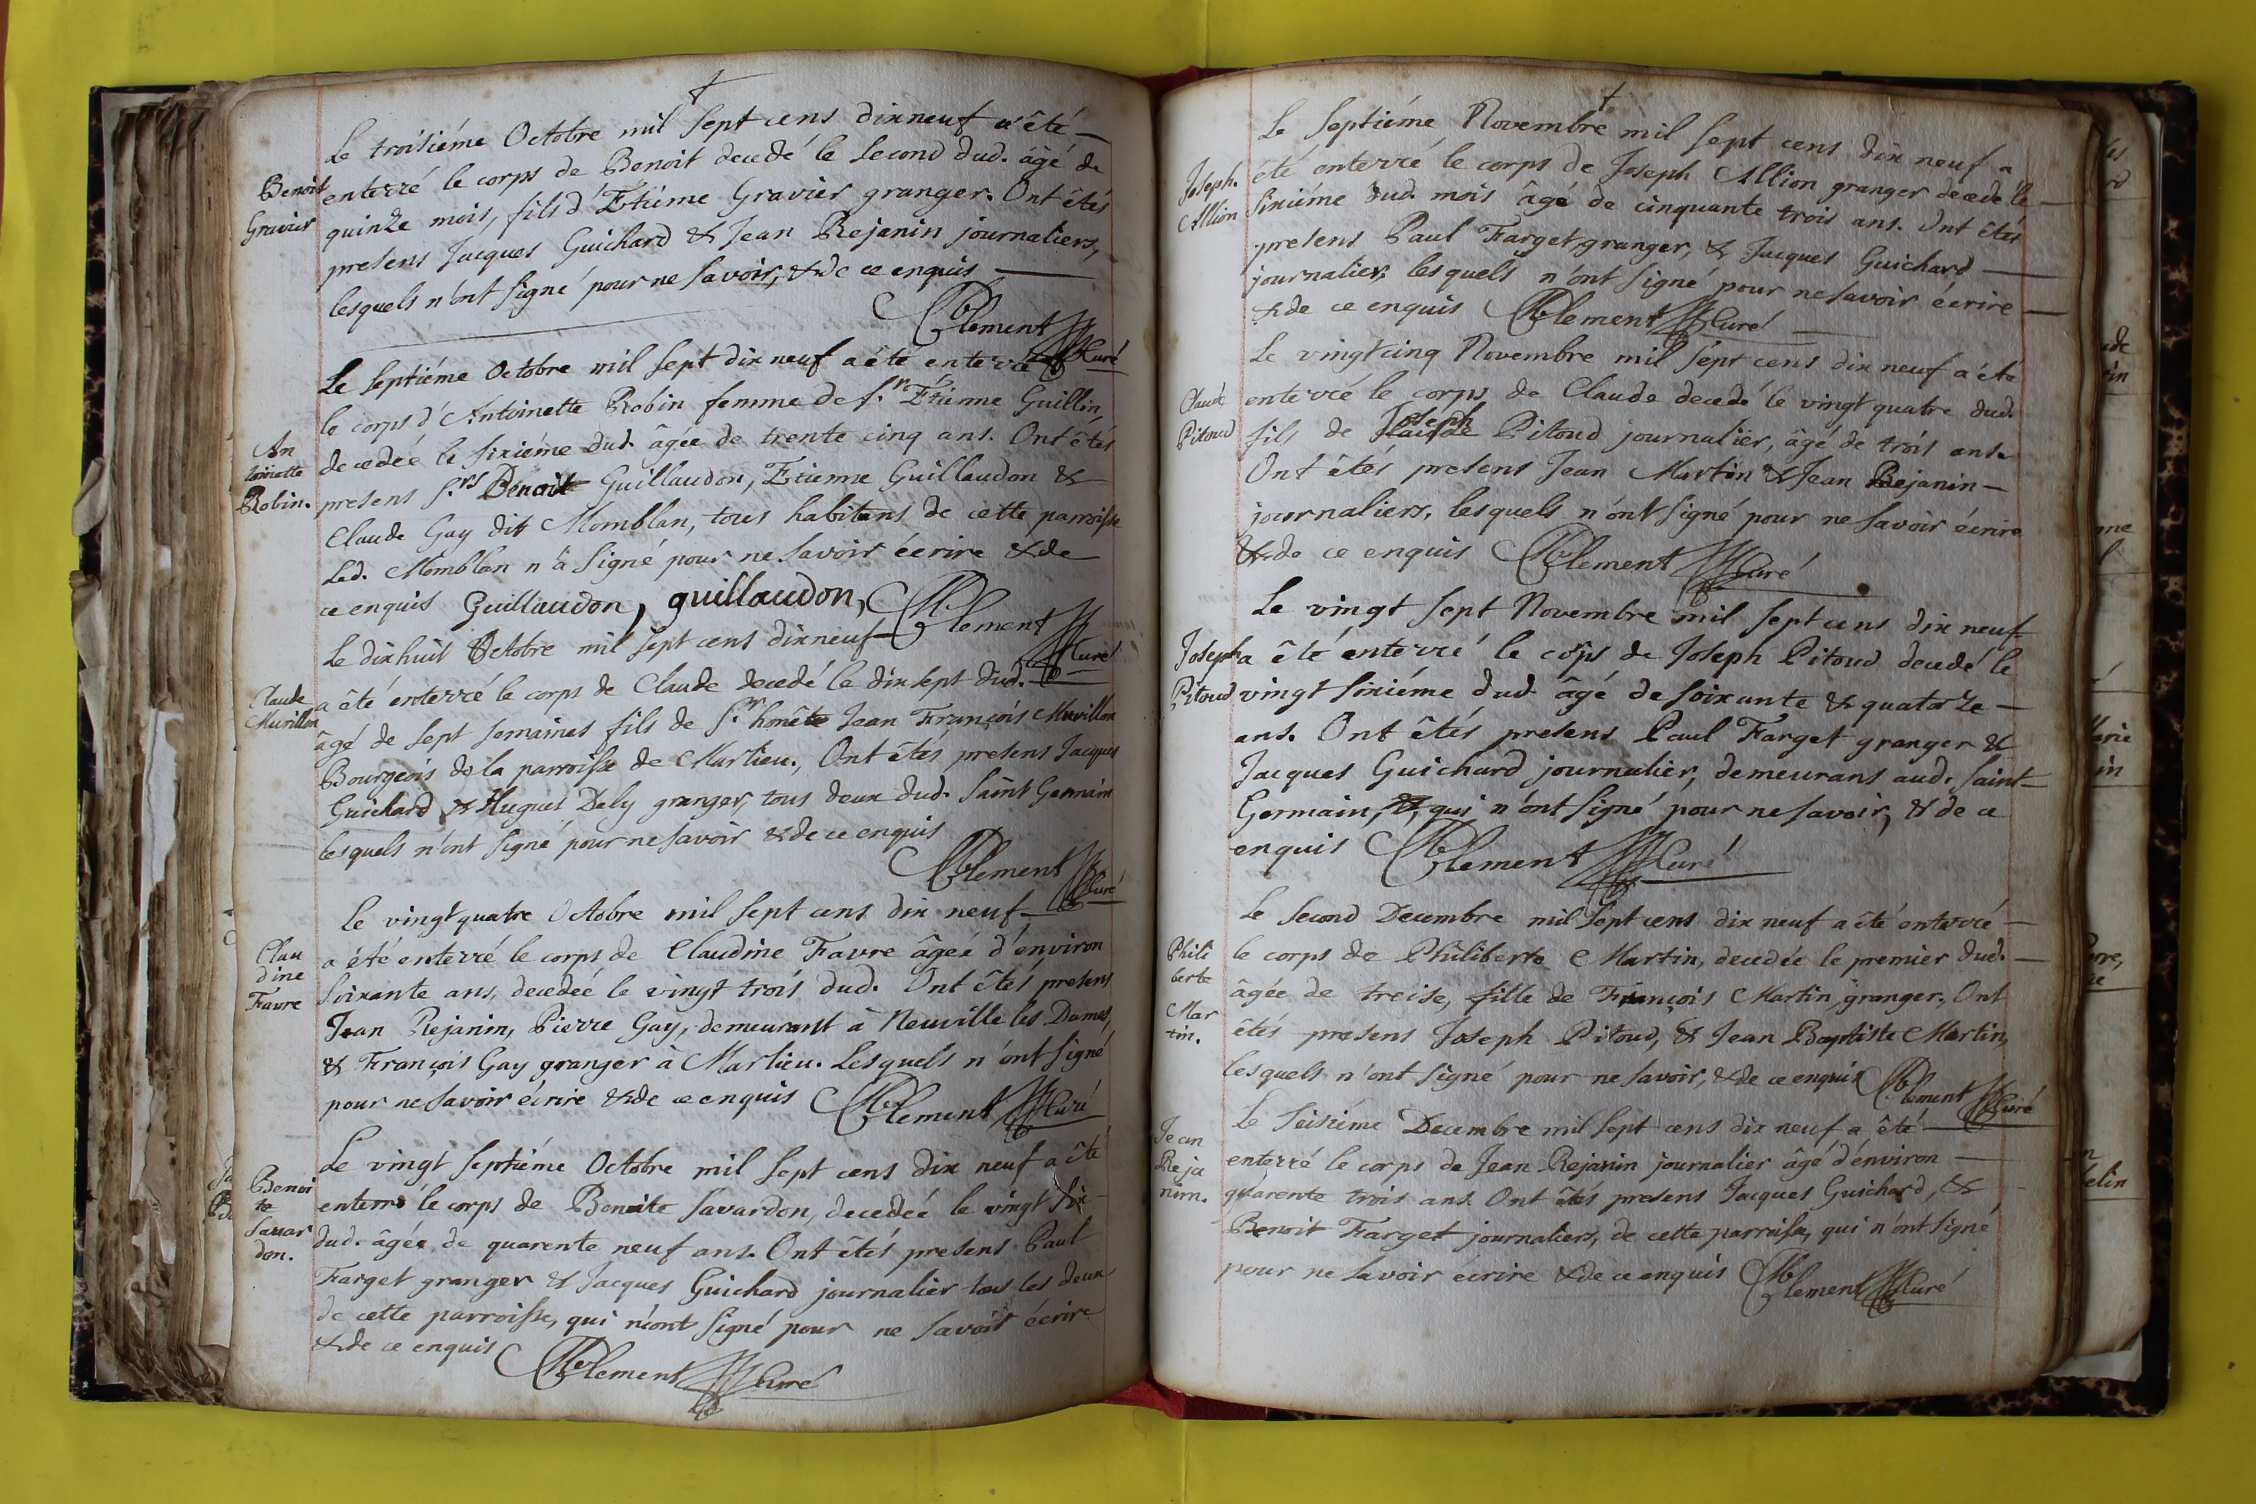 Le troisiéme Octobre mil sept cens dix neuf a êté
Benoit
Gravier
enterré le corps de Benoit decedé le second dud. âgé de
quinze mois, fils d'Etiéne Gravier granger. Ont êtés
presens Jacques Guichard & Jean Rejanin journaliers,
lesquels n'ont signé pour ne savoir, & de ce enquis
Clement Curé
Le septiéme Octobre mil sept dix neuf a été enterré
le corps d'Antoinette Robin femme de sr. Etienne Guillin,
An
toinette
Robin.
decedée le sixiéme dud. âgée de trente cinq ans. Ont êtés
presens srs. Benoit Guillaudon, Etienne Guillaudon &
Claude Gay dit Momblan, tous habitans de cette parroisse
Led. Momblan n'a signé pour ne savoir écrire & de
ce enquis Guillaudon, guillaudon, Clement Curé
Le dixhuit Octobre mil sept cens dixneuf
Claude
Murillon
a êté enterré le corps de Claude decedé le dix sept dud.
âgé de sept semaines fils de sr. honête Jean François Murillon
Bourgeois de la parroisse de Marlieu., Ont êtés presens Jacques
Guichard & Hugues Dely granger, tous deux dud. Saint Germain
lesquels n'ont signé pour ne savoir & de ce enquis
Clement Curé
Le vingt quatre Octobre mil sept cens dix neuf
Clau
dine
Favre
a été enterré le corps de Claudine Favre âgée d'environ
soixante ans, decedée le vingt trois dud. Ont êtés presens
Jean Rejanin, Pierre Gay, demeurant à Neuville les Dames,
& François Gay granger à Marlieu. Lesquels n'ont signé
pour ne savoir écrire & de ce enquis Clement Curé
Le vingt septiéme Octobre mil sept cens dix neuf a êté
Benoi
te
Savar
don.
enterré le corps de Benoite Savardon, decedée le vingt six
dud. âgée de quarente neuf ans. Ont êtés presens Paul
Farget granger & Jacques Guichard journalier tous les deux
de cette parroisse, qui n'ont signé pour ne savoir écrire
& de ce enquis Clement Curé
Le septiéme Novembre mil sept cens dix neuf a
Joseph.
Allion
été enterré le corps de Joseph Allion granger decedé le
sixiéme dud. mois âgé de cinquante trois ans. Ont êtés
presens Paul Farget, granger, & Jacques Guichard
journalier, lesquels n'ont signé pour ne savoir écrire
& de ce enquis Clement Curé
Le vingt cinq Novembre mil sept cens dix neuf a été
Claude
Pitoud
enterré le corps de Claude decedé le vingt quatre dud.
fils de Joseph Pitoud journalier, âgé de trois ans.
Ont êtés presens Jean Martin & Jean Rejanin
journaliers, lesquels n'ont signé pour ne savoir écrire
& de ce enquis Clement Curé
Le vingt sept Novembre mil sept cens dix neuf
Joseph
Pitoud
a êté enterré le corps de Joseph Pitoud decedé le
vingt sixiéme dud. âgé de soixante & quatorze
ans. Ont êtés presens Paul Farget granger &
Jacques Guichard journalier, demeurans aud. Saint
Germain, qui n'ont signé pour ne savoir, & de ce
enquis Clement Curé
Le second Decembre mil sept cens dix neuf a êté enterré
Phili
berte
Mar
tin.
le corps de Philiberte Martin, decedée le premier dud.
âgée de treise, fille de François Martin granger. Ont
êtés presens Joseph Pitoud, & Jean Baptiste Martin,
lesquels n'ont signé pour ne savoir, & de ce enquis Clement Curé
Le seiziéme Decembre mil sept cens dix neuf a êté
Jean
Reja
nin.
enterré le corps de Jean Rejanin journalier âgé d'environ
quarente trois ans. Ont êtés presens Jacques Guichard, &
Benoit Farget journaliers, de cette parroisse, qui n'ont signé
pour ne savoir écrire & de ce enquis Clement Curé